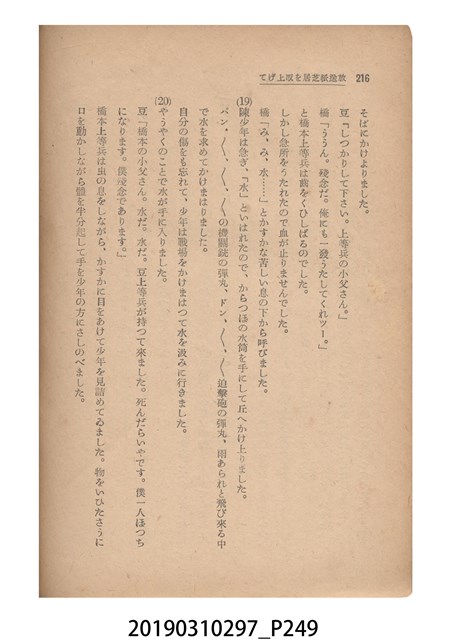 216　放送紙芝居を取上げて
そばにかけよりました。
豆「しつかりして下さい。上等兵の小父さん。」
橋「ううん。殘念だ。俺にも一發うたしてくれツー。」
と橋本上等兵は齒をくひしばるのでした。
しかし急所をうたれたので血が止りませんでした。
橋「み、み、水……」とかすかな苦しい息の下から呼びました。
(19)陳少年は急ぎ、「水」といはれたので、からつぽの水筒を手にして丘へかけ上りました。
パン、〱、〱、〱の機關銃の彈丸、ドン、〱、〱迫擊砲の彈丸、雨あられと飛び來る中
で水を求めてかけまはりました。
自分の傷をも忘れて、少年は戰場をかけまはつて水を汲みに行きました。
(20)やうやくのことで水が手に入りました。
豆「橋本の小父さん。水だ。水だ。豆上等兵が持つて來ました。死んだらいやです。僕一人ぼつち
になります。僕殘念であります。」
橋本上等兵は虫の息をしながら、かすかに目をあけて少年を見詰めてゐました。物をいひたさうに
口を動かしながら體を半分起して手を少年の方にさしのべました。
20190310297_P249